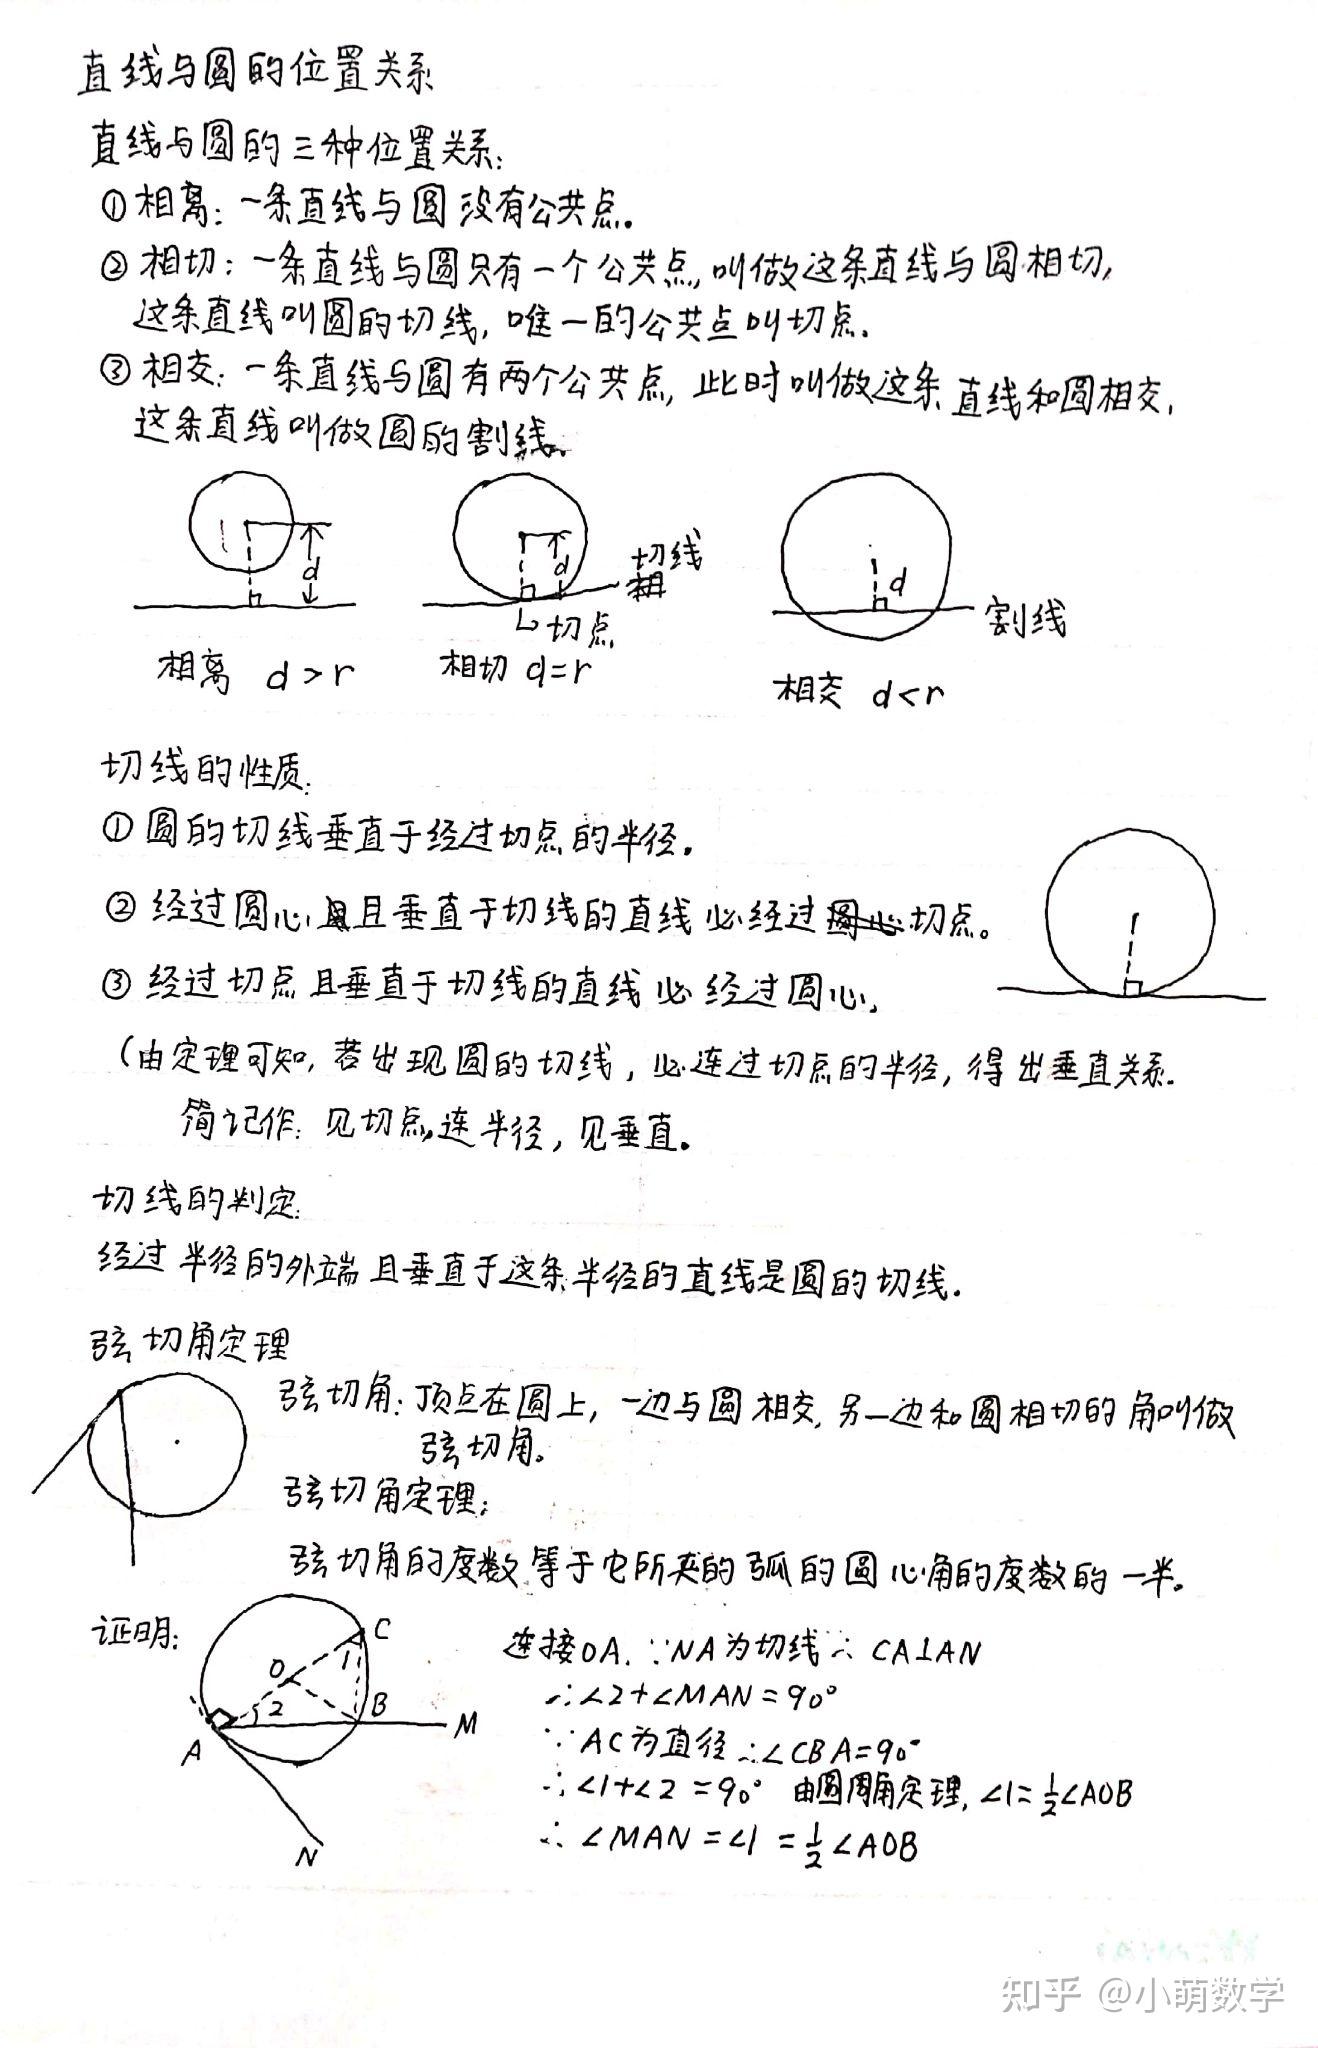 直线与圆的位置关系
直线与圆的三种位置关系:
①相离:一条直线与圆没有公共点.
②相切:一条直线与圆只有一个公共点,叫做这条直线与圆相切,
这条直线叫圆的切线,唯一的公共点叫切点.
③相交:一条直线与圆有两个公共点,此时叫做这条直线和圆相交,
这条直线叫做圆的割线.
d
d
切线
d
割线
切点
相离 d>r
相切 d=r
相交 d<r
切线的性质:
①圆的切线垂直于经过切点的半径.
②经过圆心且垂直于切线的直线必经过切点。
③经过切点且垂直于切线的直线必经过圆心.
(由定理可知,若出现圆的切线,必连过切点的半径,得出垂直关系.
简记作:见切点,连半径,见垂直.
切线的判定:
经过半径的外端且垂直于这条半径的直线是圆的切线.
弦切角定理
弦切角:顶点在圆上,一边与圆相交,另一边和圆相切的角叫做
弦切角。
弦切角定理:
弦切角的度数等于它所夹的弧的圆心角的度数的一半。
证明:
C
1
O
2
B
M
A
N
连接OA.∵NA为切线∴CA⊥AN
∴∠2+∠MAN=90°
∵AC为直径∴∠CBA=90°
∴∠1+∠2=90° 由圆周角定理,∠1=½∠AOB
∴∠MAN=∠1=½∠AOB
知乎 @小萌数学